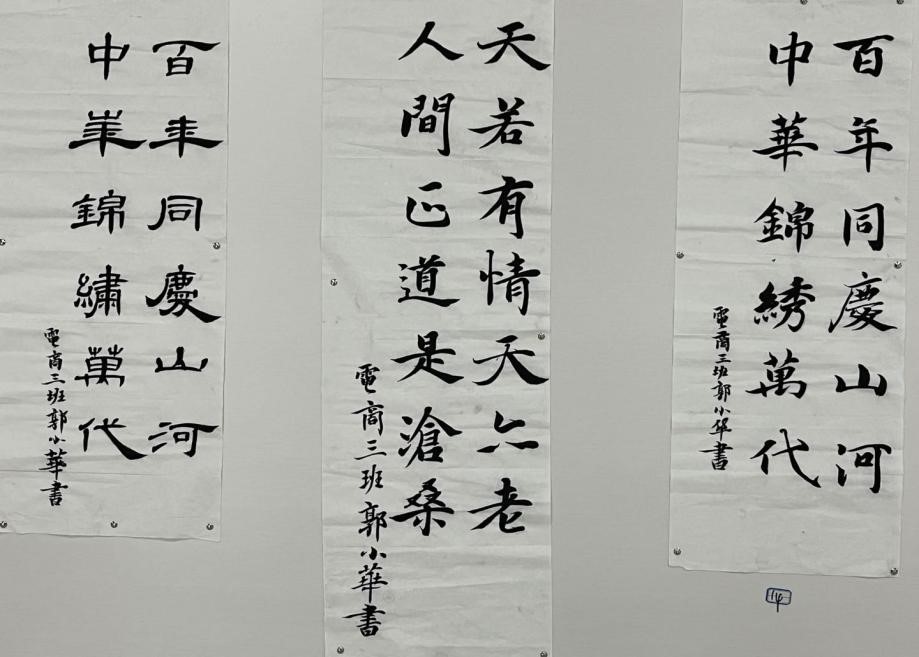 百年同慶山河
中華錦綉萬代
電商三班郭小华書
14
天若有情天亦老
人間正道是滄桑
電商三班郭小華書
百年同慶山河
中華錦繡萬代
電商三班郭小華書